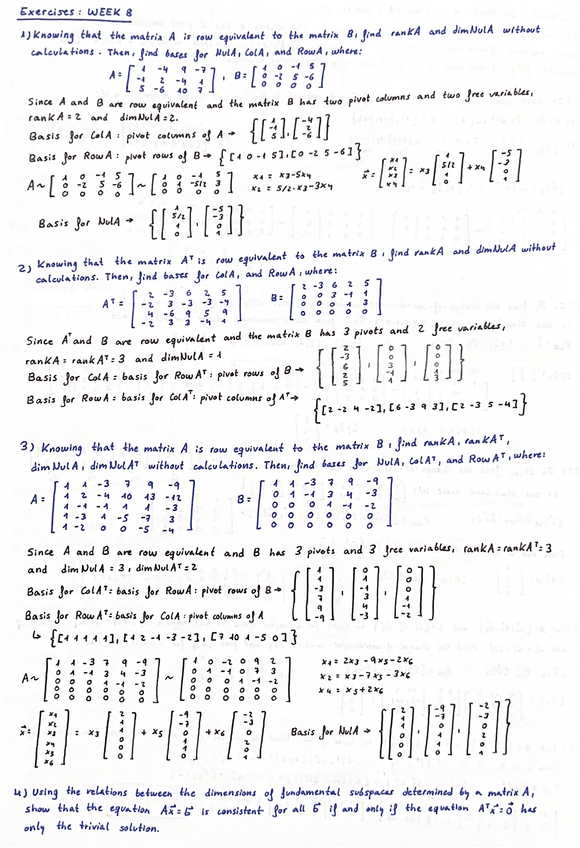 Exercises: WEEK 8
1) Knowing that the matrix A is row equivalent to the matrix B, find rankA and dimNulA without
calculations. Then, find bases for NulA, ColA, and RowA, where:
A = [1 -4 9 -7; -1 2 -4 1; 5 -6 10 7], B = [1 0 -1 5; 0 -2 5 -6; 0 0 0 0]
Since A and B are row equivalent and the matrix B has two pivot columns and two free variables,
rankA = 2 and dimNulA = 2.
Basis for ColA : pivot columns of A → {[1; -1; 5], [-4; 2; -6]}
Basis for RowA : pivot rows of B → {[1 0 -1 5], [0 -2 5 -6]}
x⃗ = [x1; x2; x3; x4] = x3 [1; 5/2; 1; 0] + x4 [-5; -3; 0; 1]
A ~ [1 0 -1 5; 0 -2 5 -6; 0 0 0 0] ~ [1 0 -1 5; 0 1 -5/2 3; 0 0 0 0]
x1 = x3 - 5x4
x2 = 5/2·x3 - 3x4
Basis for NulA → {[1; 5/2; 1; 0], [-5; -3; 0; 1]}
2) Knowing that the matrix Aᵀ is row equivalent to the matrix B, find rankA and dimNulA without
calculations. Then, find bases for ColA, and RowA, where:
Aᵀ = [2 -3 6 2 5; -2 3 -3 -3 -4; 4 -6 9 5 9; -2 3 3 -4 1] B = [2 -3 6 2 5; 0 0 3 -1 1; 0 0 0 1 3; 0 0 0 0 0]
Since Aᵀ and B are row equivalent and the matrix B has 3 pivots and 2 free variables,
rankA = rankAᵀ = 3 and dimNulA = 1
Basis for ColA = basis for RowAᵀ : pivot rows of B → {[2; -3; 6; 2; 5], [0; 0; 3; -1; 1], [0; 0; 0; 1; 3]}
Basis for RowA = basis for ColAᵀ : pivot columns of Aᵀ →
{[2 -2 4 -2], [6 -3 9 3], [2 -3 5 -4]}
3) Knowing that the matrix A is row equivalent to the matrix B, find rankA, rankAᵀ,
dimNulA, dimNulAᵀ without calculations. Then, find bases for NulA, ColAᵀ, and RowAᵀ, where:
A = [1 1 -3 7 9 -9; 1 2 -4 10 13 -12; 1 -1 -1 1 1 -3; 1 -3 1 -5 -7 3; 1 -2 0 0 -5 -4] B = [1 1 -3 7 9 -9; 0 1 -1 3 4 -3; 0 0 0 1 -1 -2; 0 0 0 0 0 0; 0 0 0 0 0 0]
Since A and B are row equivalent and B has 3 pivots and 3 free variables, rankA = rankAᵀ = 3
and dimNulA = 3, dimNulAᵀ = 2
Basis for ColAᵀ = basis for RowA : pivot rows of B → {[1; 1; -3; 7; 9; -9], [0; 1; -1; 3; 4; -3], [0; 0; 0; 1; -1; -2]}
Basis for RowAᵀ = basis for ColA : pivot columns of A
↳ {[1 1 1 1 1], [1 2 -1 -3 -2], [7 10 1 -5 0]}
A ~ [1 1 -3 7 9 -9; 0 1 -1 3 4 -3; 0 0 0 1 -1 -2; 0 0 0 0 0 0; 0 0 0 0 0 0] ~ [1 0 -2 0 9 2; 0 1 -1 0 7 3; 0 0 0 1 -1 -2; 0 0 0 0 0 0; 0 0 0 0 0 0]
x1 = 2x3 - 9x5 - 2x6
x2 = x3 - 7x5 - 3x6
x4 = x5 + 2x6
x⃗ = [x1; x2; x3; x4; x5; x6] = x3 [2; 1; 1; 0; 0; 0] + x5 [-9; -7; 0; 1; 1; 0] + x6 [-2; -3; 0; 2; 0; 1]
Basis for NulA → {[2; 1; 1; 0; 0; 0], [-9; -7; 0; 1; 1; 0], [-2; -3; 0; 2; 0; 1]}
4) Using the relations between the dimensions of fundamental subspaces determined by a matrix A,
show that the equation Ax⃗ = b⃗ is consistent for all b⃗ if and only if the equation Aᵀx⃗ = 0⃗ has
only the trivial solution.